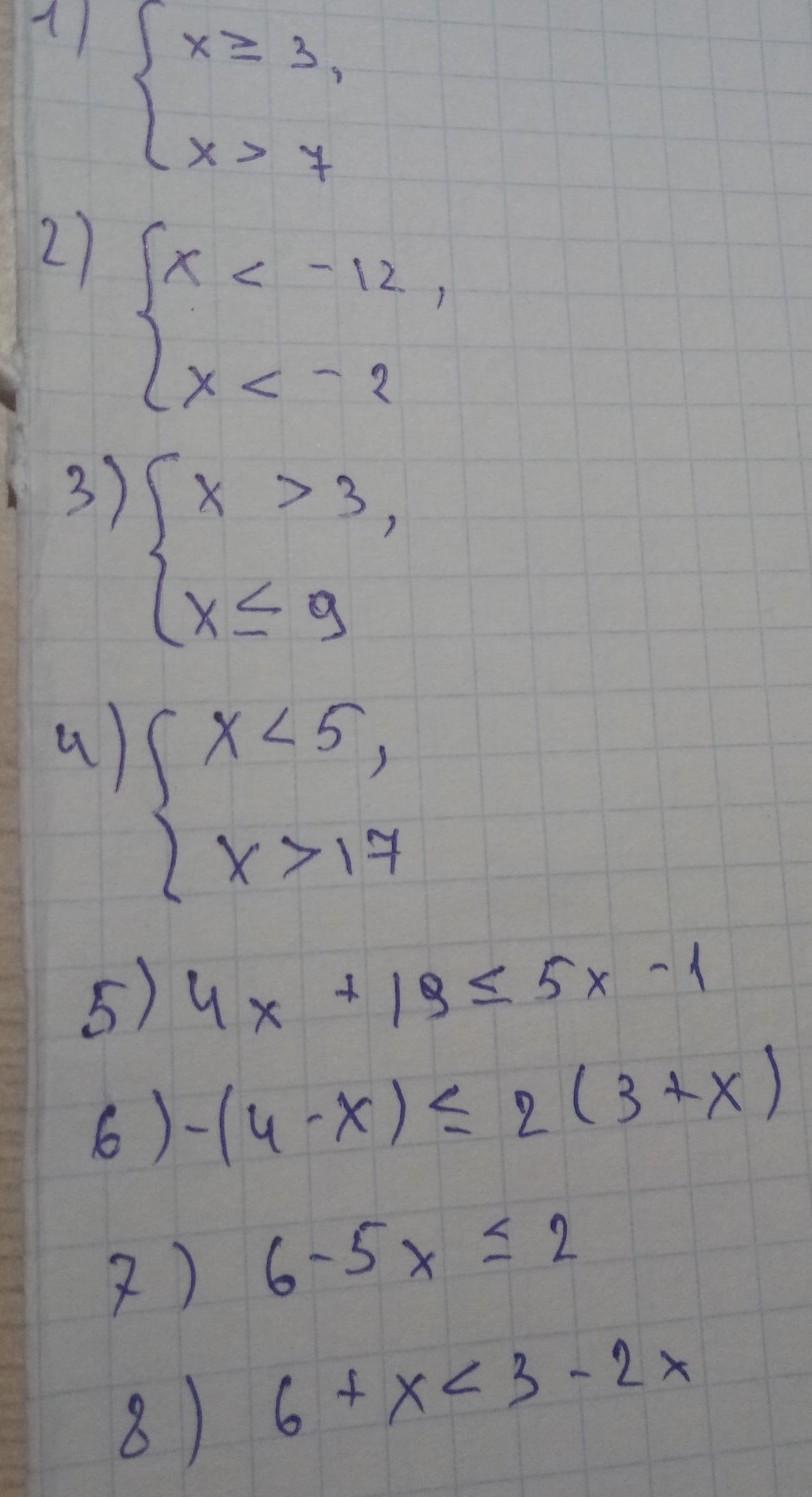 1) { x ≥ 3,
x > 7
2) { x < -12,
x < -2
3) { x > 3,
x ≤ 9
4) { x < 5,
x > 17
5) 4x + 19 ≤ 5x - 1
6) -(4 - x) ≤ 2(3 + x)
7) 6 - 5x ≤ 2
8) 6 + x < 3 - 2x